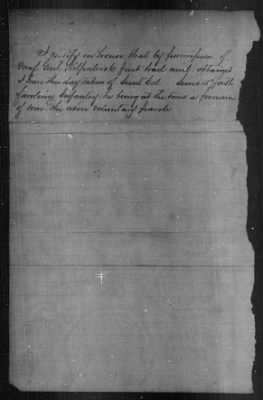 I certify on honor that by permission of
Genl. Kilpatrick first had and obtained
I have this day taken of Lieut Col 15th South
Carolina Infantry, he being at the time a prisoner
of war the above voluntary parole